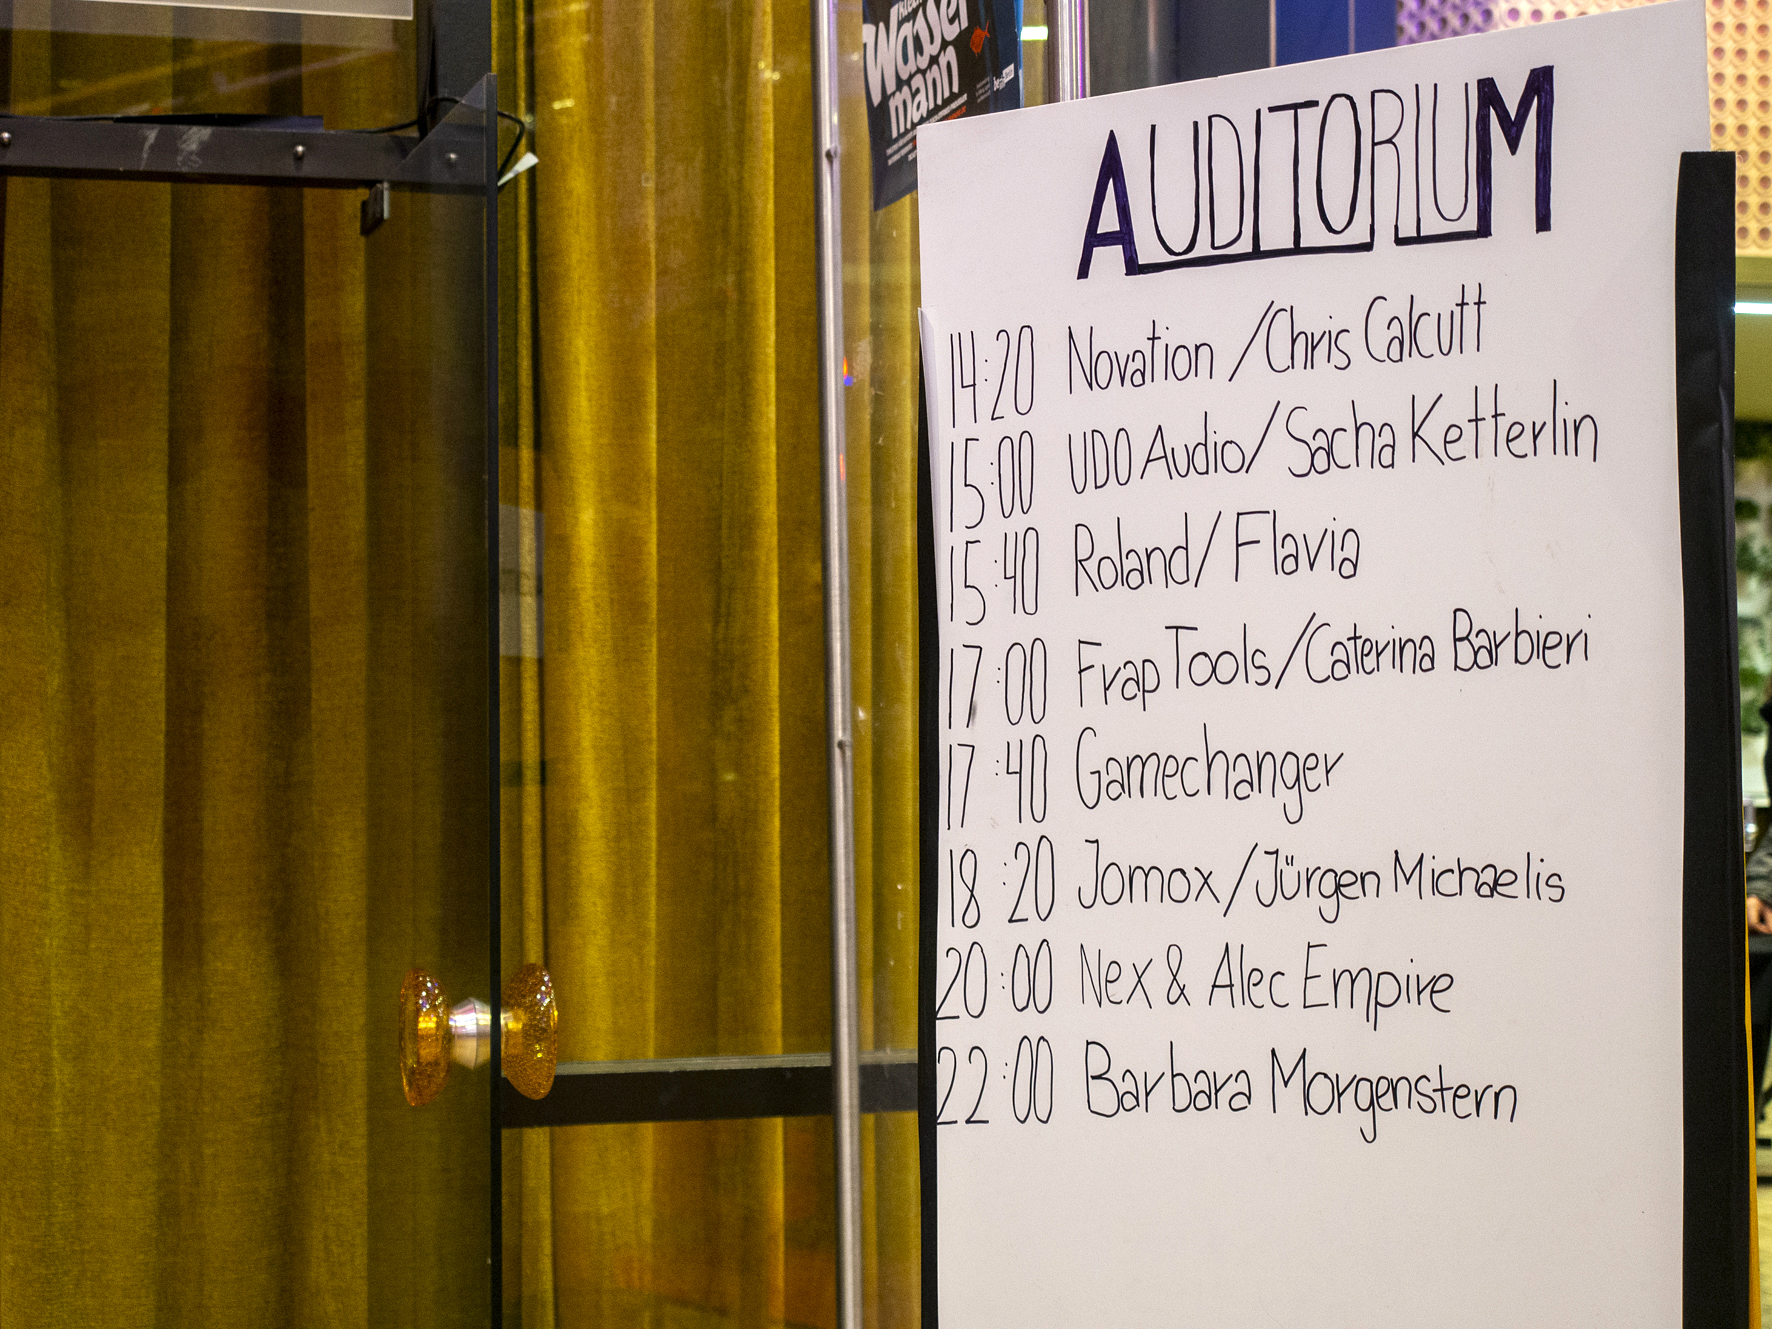 Wasser
mann
AUDITORIUM
14:20 Novation / Chris Calcutt
15:00 UDO Audio / Sacha Ketterlin
15:40 Roland / Flavia
17:00 Frap Tools / Caterina Barbieri
17:40 Gamechanger
18:20 Jomox / Jürgen Michaelis
20:00 Nex & Alec Empire
22:00 Barbara Morgenstern